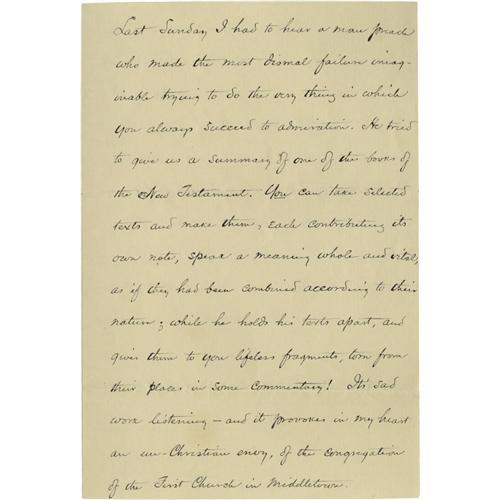 Last Sunday I had to hear a man preach
who made the most dismal failure imag-
inable trying to do the very thing in which
you always succeed to admiration. He tried
to give us a summary of one of the books of
the New Testament. You can take selected
texts and make them, each contributing its
own note, speak a meaning whole and vital,
as if they had been combined according to their
nature; while he holds his texts apart, and
gives them to you lifeless fragments, torn from
their places in some Commentary! It's sad
work listening – and it provokes in my heart
an un-Christian envy, of the congregation
of the First Church in Middletown.